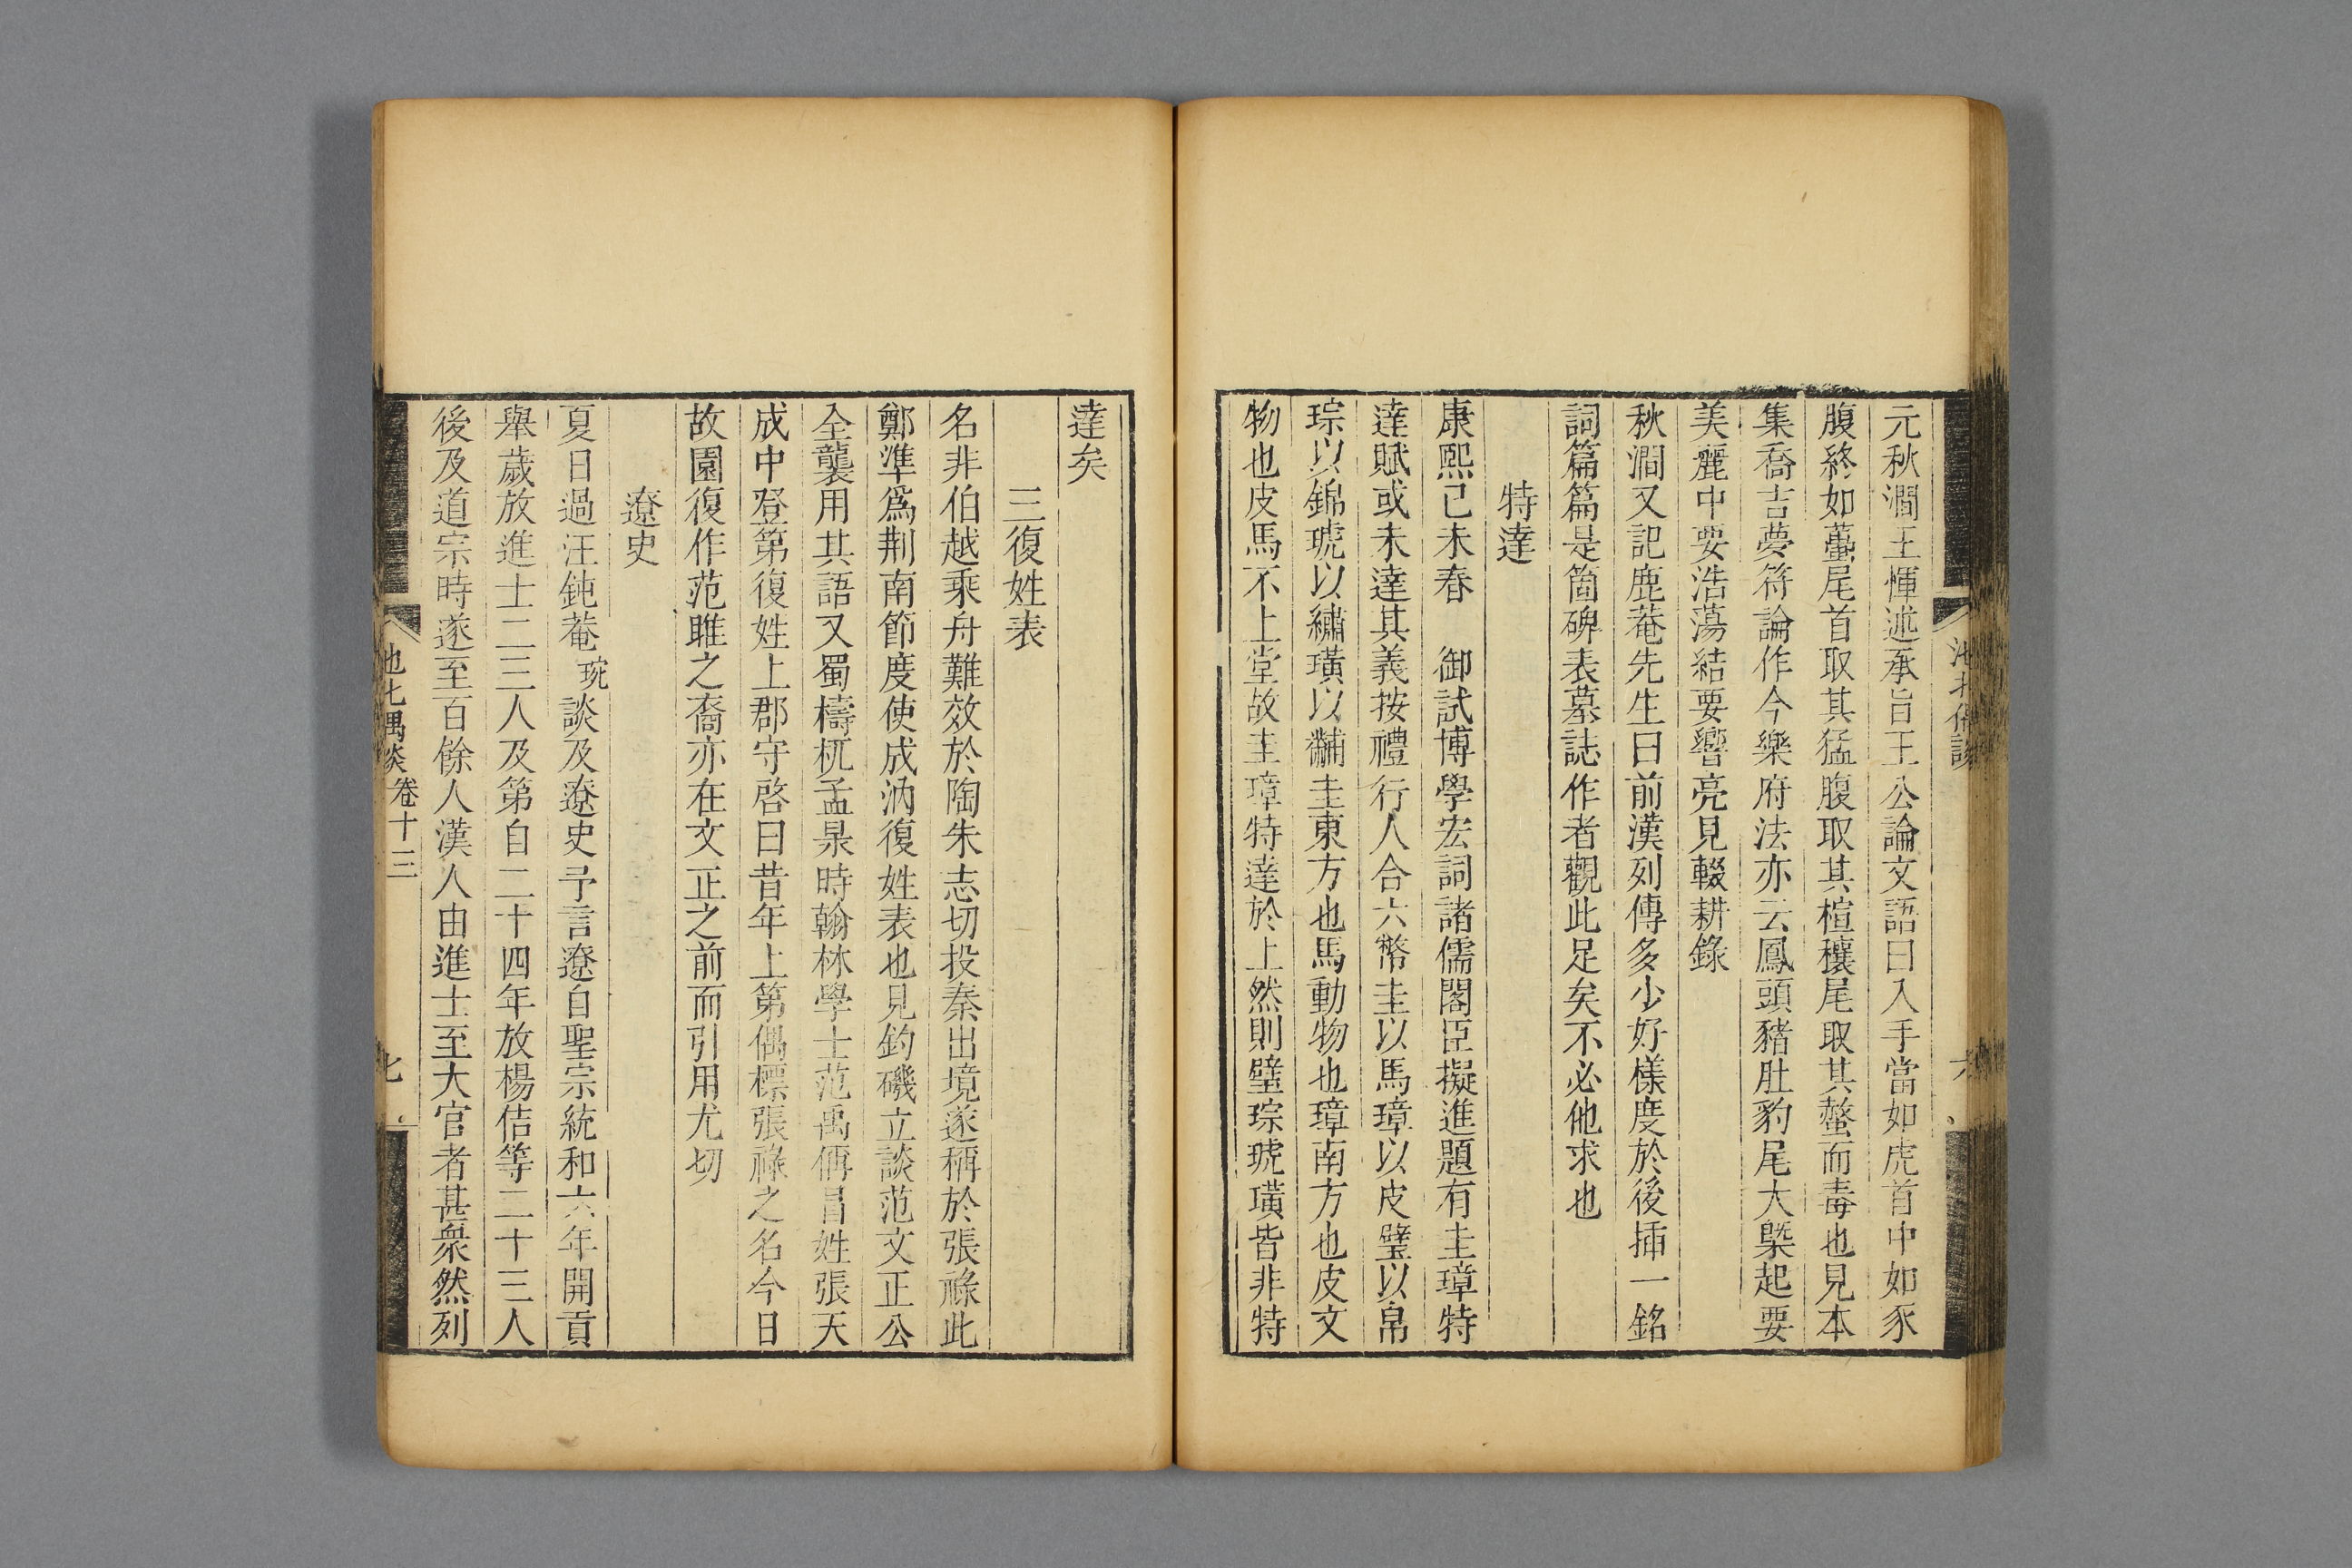 元秋澗王惲述承旨王公論文語曰入手當如虎首中如豕
腹終如蠆尾首取其猛腹取其楦穰尾取其螫而毒也見本
集喬吉夢符論作今樂府法亦云鳳頭豬肚豹尾大槩起要
美麗中要浩蕩結要響亮見輟耕錄
秋澗又記鹿菴先生曰前漢列傳多少好樣度於後插一銘
詞篇篇是箇碑表墓誌作者觀此足矣不必他求也
特達
康熙己未春 御試博學宏詞諸儒閣臣擬進題有圭璋特
達賦或未達其義按禮行人合六幣圭以馬璋以皮璧以帛
琮以錦琥以繡璜以黼圭東方也馬動物也璋南方也皮文
物也皮馬不上堂故圭璋特達於上然則璧琮琥璜皆非特
達矣
三復姓表
名非伯越乘舟難效於陶朱志切投秦出境遂稱於張祿此
鄭準爲荆南節度使成汭復姓表也見釣磯立談范文正公
全襲用其語又蜀檮杌孟昶時翰林學士范禹偁冒姓張天
成中登第復姓上郡守啓曰昔年上第偶標張祿之名今日
故園復作范雎之裔亦在文正之前而引用尤切
遼史
夏日過汪鈍菴琬談及遼史予言遼自聖宗統和六年開貢
舉歲放進士二三人及第自二十四年放楊佶等二十三人
後及道宗時遂至百餘人漢人由進士至大官者甚衆然列
池北偶談 卷十三 七